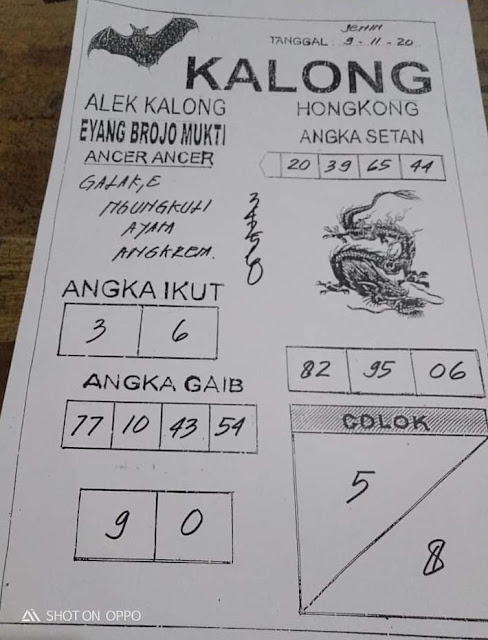 SENIN
TANGGAL : 9 - 11 - 20
KALONG
ALEK KALONG
EYANG BROJO MUKTI
ANCER ANCER
GALAK,E
NGUNGKULI
AYAM
ANGKREM.
3
4
5
6
8
HONGKONG
ANGKA SETAN
20 39 65 44
ANGKA IKUT
3 6
82 95 06
ANGKA GAIB
77 10 43 54
9 0
COLOK
5
8
SHOT ON OPPO